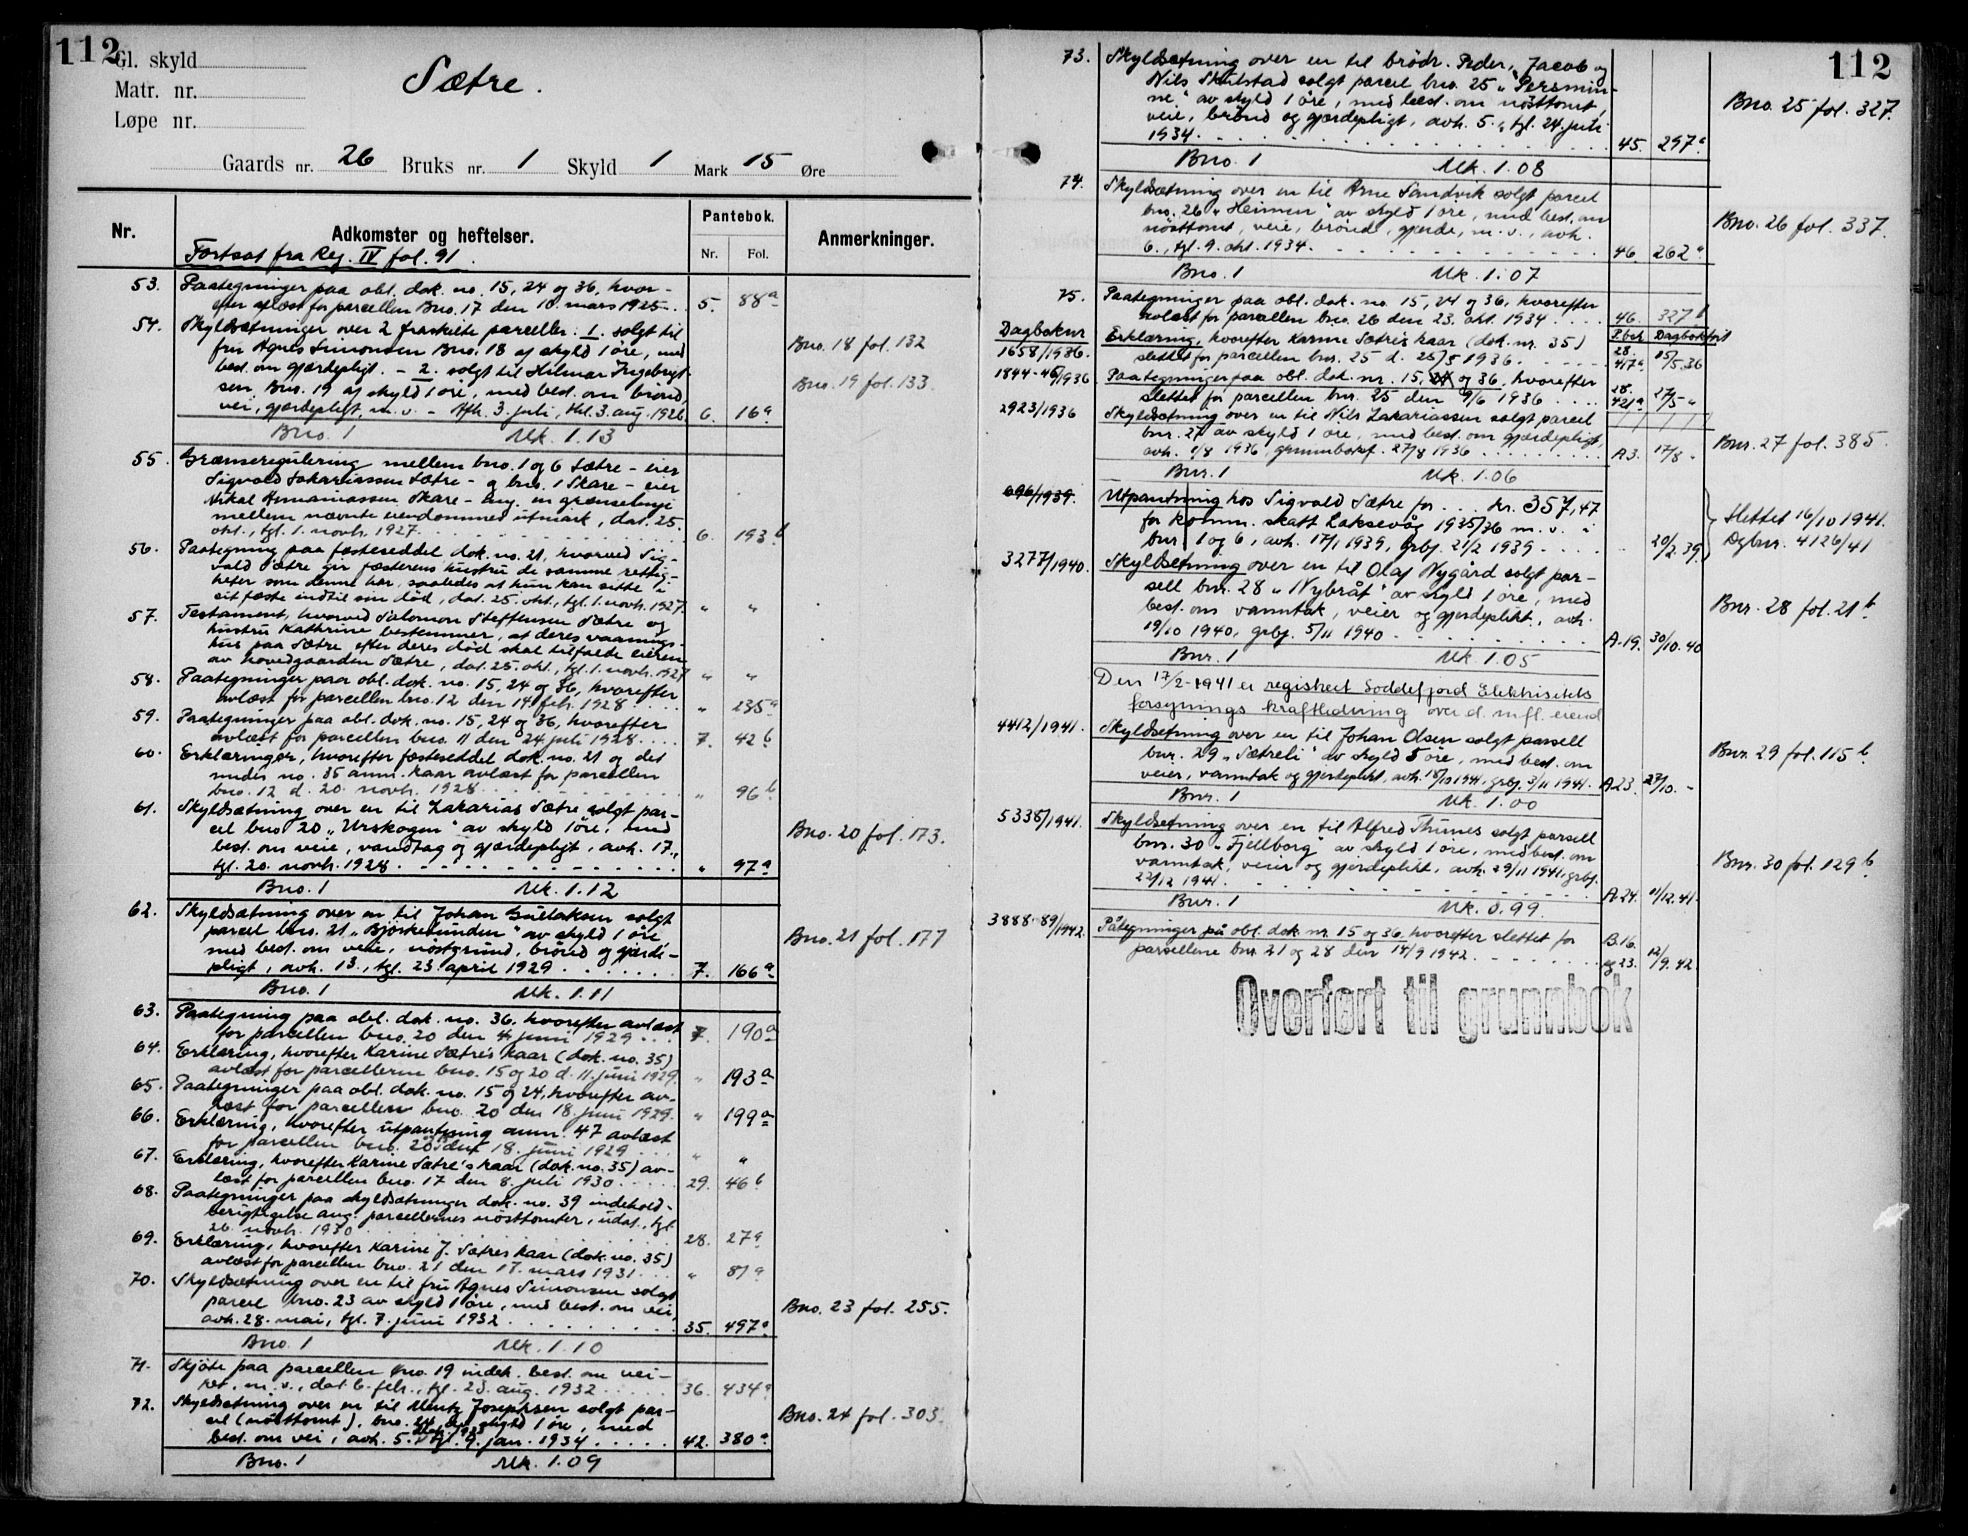 112
Gl. skyld
Matr. nr.
Løpe nr.
Sætre.
Gaards nr. 26 Bruks nr. 1 Skyld 1 Mark 15 Øre
Nr. Adkomster og heftelser. Pantebok. Nr. Fol. Anmerkninger.
Fortsat fra Reg. IV fol. 91.
53. Paategninger paa obl. dok. no. 15, 24 og 36, hvor-
efter avlæst for parcellen Bno. 17 den 10 mars 1925. 5. 88a
54. Skyldsætninger over 2 fraskilte parceller: 1. solgt til
fru Agnes Simonsen Bno. 18 af skyld 1 øre, med Bno. 18 fol. 132
best. om gjærdepligt. – 2. solgt til Hilmar Ingebrigt-
sen Bno. 19 af skyld 1 øre, med best. om brönd, Bno. 19 fol. 133.
vei, gjærdepligt, m. v. – Afh. 3. juli, thl. 3. aug. 1926 6. 16a
Bno. 1 Mk. 1.13
55. Grænseregulering mellem bno. 1 og 6 Sætre – eier
Sigvald Sakariassen Sætre – og bno. 1 Skare – eier
Nikal Hemaniassen Skare – ang. en grænselinje
mellem nævnte eiendommes utmark, dat. 25.
okt., tgl. 1. novb. 1927. 6. 193b
56. Paategning paa fæsteseddel dok. no. 21, hvorved Sig-
vald Sætre gir fæsterens hustru de samme rettig-
heter som denne har, saaledes at hun kan sitte i
sit fæste indtil sin död, dat. 25. okt., tgl. 1. novb. 1927. " "
57. Testament, hvorved Salomon Steffensen Sætre og
hustru Kathrine bestemmer, at deres vaanings-
hus paa Sætre efter deres död skal tilfalde eieren
av hovedgaarden Sætre, dat. 25. okt., tgl. 1. novb. 1927 " "
58. Paategninger paa obl. dok. no. 15, 24 og 36, hvorefter
avlæst for parcellen bno. 12 den 14 feb. 1928 " 235a
59. Paategninger paa obl. dok. no. 15, 24 og 36, hvorefter
avlæst for parcellen bno. 11 den 24 juli 1928 7. 42b
60. Erklæringer, hvorefter fæsteseddel dok. no. 21 og det
under no. 35 anm. kaar avlæst for parcellen
bno. 12 d. 20. novb. 1928 " 96b
61. Skyldsætning over en til Zakarias Sætre solgt par-
cel bno 20 „Urskogen" av skyld 1 öre, med Bno. 20 fol. 173.
best. om veie, vandtag og gjærdepligt, avh. 17.,
tgl. 20. novb. 1928 " 97a
Bno. 1 Mk. 1.12
62. Skyldsætning over en til Johan Gullaksen solgt
parcel bno. 21 „Bjørkelunden" av skyld 1 öre Bno. 21 fol. 177
med best. om veie, nöstgrund, brönd og gjærde-
pligt, avh. 13., tgl. 23. april 1929 7. 166a
Bno. 1 Mk. 1.11
63. Paategning paa obl. dok. no. 36, hvorefter avlæst
for parcellen bno. 20 den 4 juni 1929 7. 190a
64. Erklæring, hvorefter Karine Sætre's kaar (dok. no. 35)
avlæst for parcellerne bno. 15 og 20 d. 11. juni 1929. " 193a
65. Paategninger paa obl. dok. no. 15 og 24, hvorefter av-
læst for parcellen bno. 20 den 18. juni 1929. " 199a
66. Erklæring, hvorefter utpantning anm. 47 avlæst
for parcellen bno. 20 den 18. juni 1929 " "
67. Erklæring, hvorefter Karine Sætre's kaar (dok. no. 35) av-
læst for parcellen bno. 17 den 8. juli 1930 29. 46b
68. Paategninger paa skyldsætninger dok. no. 39 indehold.
berigtigelse ang. parcellernes nösttomter, udat., tgl.
26. novb. 1930 28. 27a
69. Erklæring, hvorefter Karine J. Sætres kaar (dok. no. 35)
avlæst for parcellen bno. 21 den 17. mars 1931 " 87a
70. Skyldsætning over en til fru Agnes Simonsen solgt
parcel bno. 23 av skyld 1 öre, med best. om vei, Bno. 23 fol. 255.
avh. 28. mai, tgl. 7. juni 1932 35. 497a
Bno. 1 Mk. 1.10
71. Skjöte paa parcellen bno. 19 indeh. best. om vei-
ret, m. v., dat. 6. feb., tgl. 23. aug. 1932 36. 434a
72. Skyldsætning over en til Mentz Josephsen solgt par-
cel (nösttomt), bno. 24 av skyld 1 öre, med Bno. 24 fol. 303.
best. om vei, avh. 5. tgl. 9. jan. 1934 42. 380a
Bno. 1 Mk. 1.09
112
73. Skyldsætning over en til brödr. Peder, Jacob og
Nils Skulstad solgt parcel bno. 25 „Persmin-
ne" av skyld 1 öre, med best. om nösttomt, Bno. 25 fol. 327.
veie, brönd og gjærdepligt, avh. 5., tgl. 24. juli
1934. 45. 297a
Bno. 1 Mk. 1.08
74. Skyldsætning over en til Arne Sandvik solgt parcel
bno. 26 „Heimen" av skyld 1 öre, med best. om Bno. 26 fol. 337.
nösttomt, veie, brönd, gjerde, m. v., avh.
6., tgl. 9. okt. 1934. 46. 262a
Bno. 1 Mk. 1.07
75. Paategninger paa obl. dok. no. 15, 24 og 36, hvorefter
avlæst for parcellen bno. 26 den 23. okt. 1934 46. 327b
Dagboknr P.bok Dagbokført
1658/1936. Erklæring, hvorefter Karine Sætre's kaar (dok. nr. 35)
slettet for parcellen bnr. 25 d. 25/5 1936 28. 417a 15/5.36
1844-46/1936 Paategninger paa obl. dok. nr. 15, 24 og 36, hvorefter
slettet for parcellen bnr. 25 den 9/6 1936 28. 421a 27/5 "
2923/1936 Skyldsætning over en til Nils Zakariassen solgt parcel
bnr. 27 av skyld 1 öre, med best. om gjærdepligt, Bnr. 27 fol. 385.
avh. 1/8 1936, grunnboksf. 27/8 1936 A3. 17/8 "
Bnr. 1 Mk. 1.06
696/1939. Utpantning hos Sigvald Sætre for kr. 357,47
for komm. skatt Laksevåg 1935/36 m. v. i Slettet 16/10 1941.
bnr. 1 og 6, avh. 17/1 1939, grbf. 21/2 1939 20/2.39. Dgbnr. 4126/41
3277/1940. Skyldsetning over en til Olaf Nygård solgt par-
sell bnr. 28 „Nybråt" av skyld 1 öre, med Bnr. 28 fol. 21b
best. om vanntak, veier og gjerdeplikt, avh.
19/10 1940, grbf. 5/11 1940 A.19. 30/10.40
Bnr. 1 Mk. 1.05
Den 17/2-1941 er registrert Soddefjord Elektrisitets
forsynings kraftledning over d. m.fl. eiend
4412/1941. Skyldsetning over en til Johan Olsen solgt parsell
bnr. 29 „Sætreli" av skyld 5 öre, med best. om Bnr. 29 fol. 115b
veier, vanntak og gjerdeplikt, avh. 18/10 1941, grbf. 3/11 1941. A23. 27/10. -
Bnr. 1 Mk. 1.00
5338/1941. Skyldsetning over en til Alfred Thunes solgt parsell
bnr. 30 „Fjellborg" av skyld 1 öre, med best. om Bnr. 30 fol. 129b
vanntak, veier og gjerdeplikt, avh. 29/11 1941, grbf.
22/12 1941. A.24. 11/12.41.
Bnr. 1 Mk. 0.99.
3888-89/1942. Påtegninger på obl. dok. nr. 15 og 36, hvorefter slettet for B.16.
parsellene bnr. 21 og 28 den 14/9 1942. og 23. 12/9.42.
Overført til grunnbok